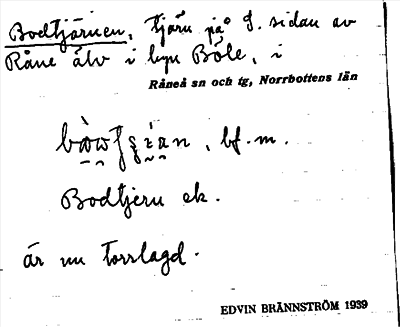 Bodtjärnen, tjärn på S. sidan av
Råne älv i byn Böle, i
Råneå sn och tg, Norrbottens län
bf. m.
Bodtjern ek.
är nu torrlagd.
EDVIN BRÄNNSTRÖM 1939